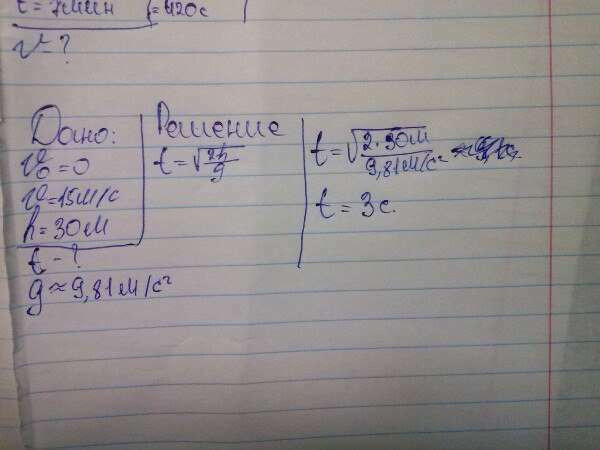 t = 7мин = 420с
v - ?
Дано:
v₀ = 0
v = 15м/с
h = 30м
t - ?
g ≈ 9,81м/с²
Решение
t = √2h/g
t = √2·30м/9,81м/с²
t = 3с.